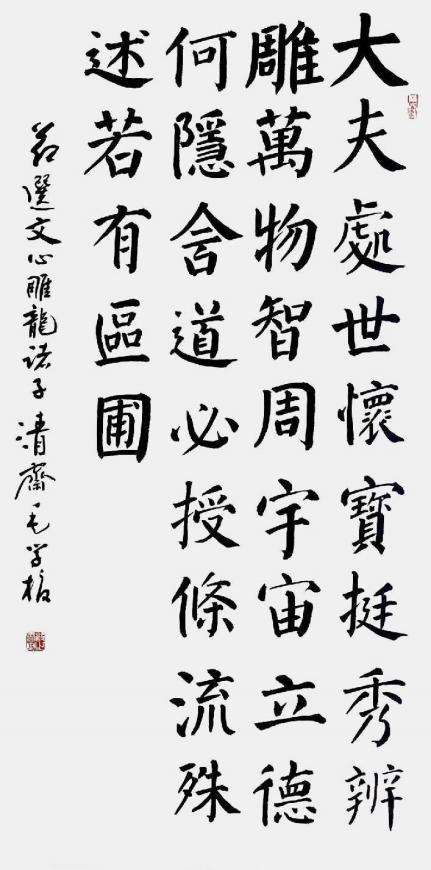 大夫處世懷寶挺秀辨
雕萬物智周宇宙立德
何隱含道必授條流殊
述若有區圃
節選文心雕龍諸子清齋毛学